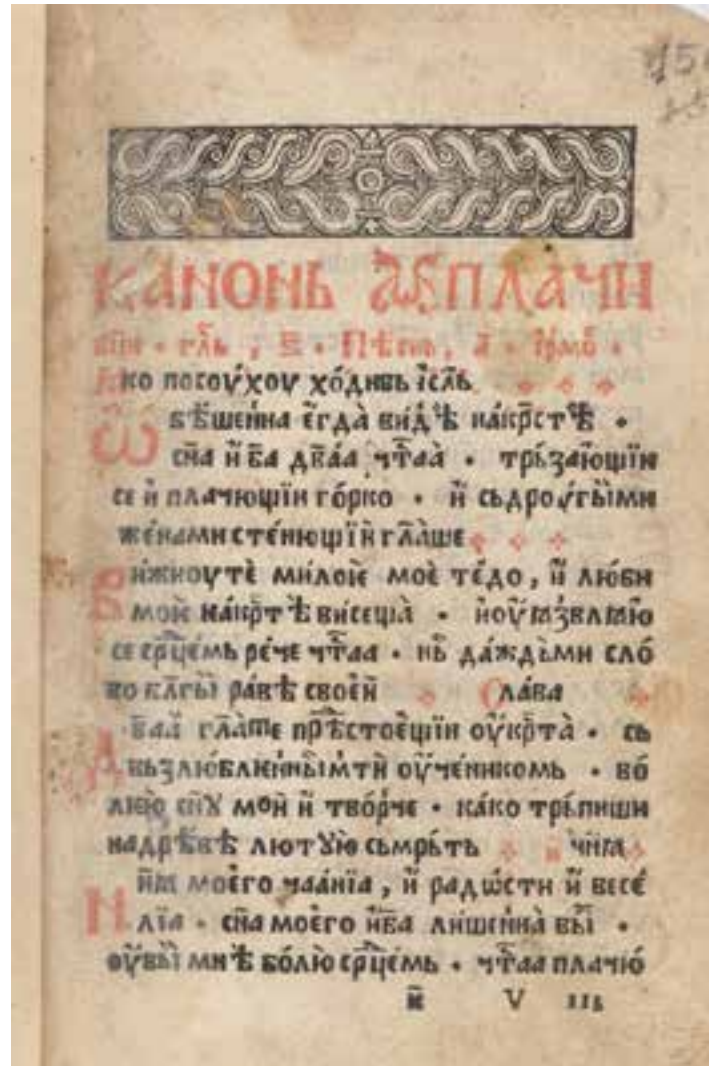 КАНОНЬ ПЛАЧИ
гл҃ь , Пѣснь , а҃ • і҆рмо̑ •
ко посоу́хоу хо́дивь і҆с҃ль
Ѡ бѣ́шенна є҆гда̀ ви́дѣ накр҃стѣ •
сн҃а и҆ б҃а дв҃аа чт҃аа • трь́заю́щїи
се и҆ плачющїи го́рко • и҆ сьдроу́гыими
же́нами сте́нющїи гл҃аше
Ви́жноутѐ ми́лоѥ моѐ те́до , и҆ люби
се ср҃цемь ре́че чт҃аа • нь да́ждьми сло́
во бл҃гы́и ра́бѣ своѐи Сла́ва
Два҃а гл҃аше прѣ́стоѐщїи оу҆кр҃та̀ • сь
вьзлю́бленны́мти оу҆че́никомь • во́
лею̀ сн҃ꙋ мои и҆ тво́рче • ка́ко трь́пиши
надрѣ́вѣ лютꙋю̀ сьмрь́ть и҆ нн҃ꙗ
моѐго чаа́нїа , и҆ радѡ́сти и҆ весе́
лїа • сн҃а моѐго и҆ б҃а лише́нна̀ бы̀ •
оу҆вы̀ мнѣ бо́лю̀ ср҃цемь • чт҃аа плачю̀